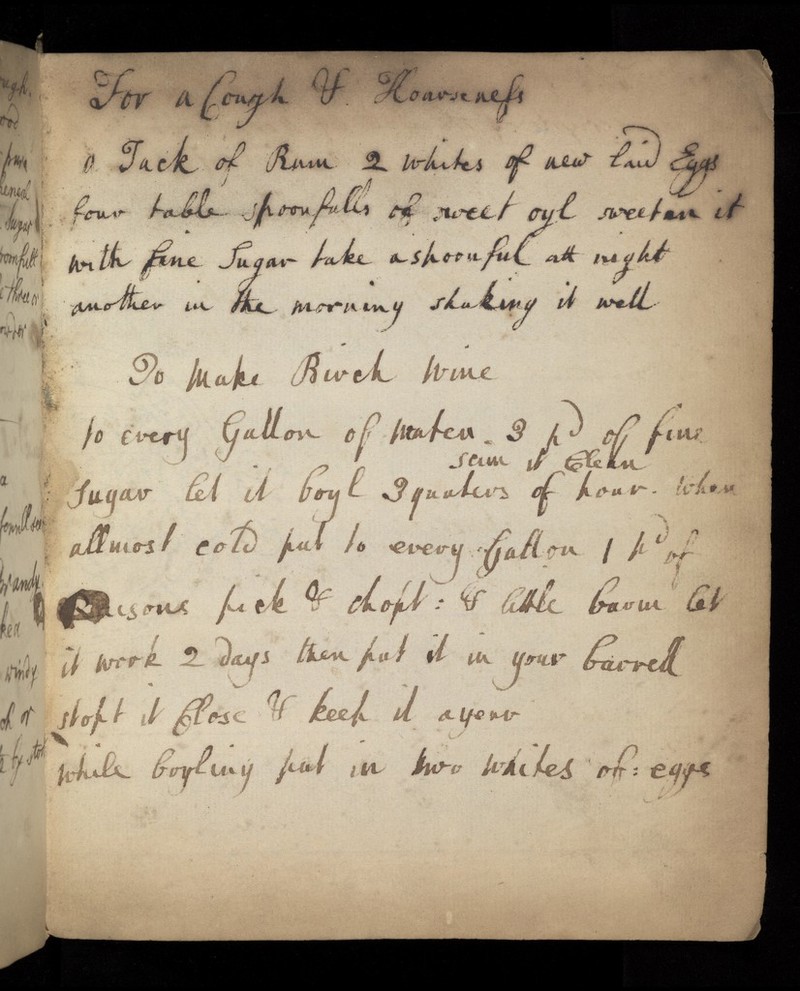 For a Cough & Hoarseness
a Jack of Rum 2 whites of new laid Eggs
four table spoonfulls of sweet oyl sweeten it
with fine Sugar take a spoonful att night
another in the morning shaking it well
To Make Birch Wine
to every Gallon of Water 3 pd of fine
scim it Clean
Sugar let it boyl 3 quaters of hour. When
allmost cold put to every Gallon 1 pd of
Raisons pick & chopt: & little barm let
it work 2 days then put it in your barrell
stopt it Close & keep it a yenr
while boyling put in two whites of: eggs